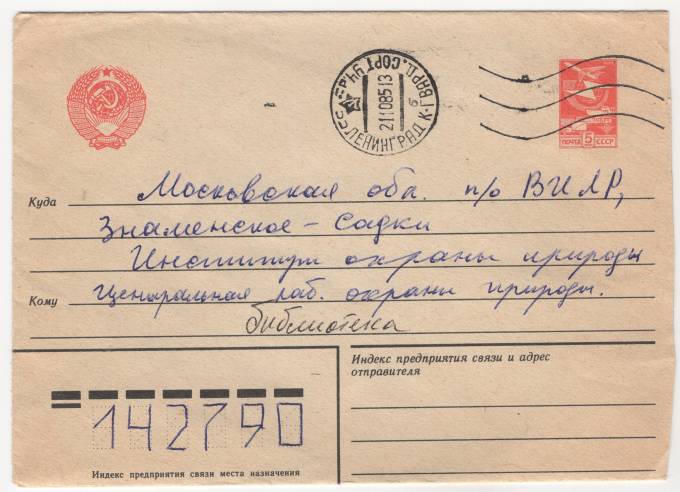 СССР ЛЕНИНГРАД К-1 ВАР Д. СОРТ УЧ
21108513
б
ПОЧТА 5 СССР
Куда Московская обл. п/о ВИЛР,
Знаменское - Садки
Институт охраны природы
Кому Центральная лаб. охраны природы.
библиотека
Индекс предприятия связи и адрес
отправителя
142790
Индекс предприятия связи места назначения